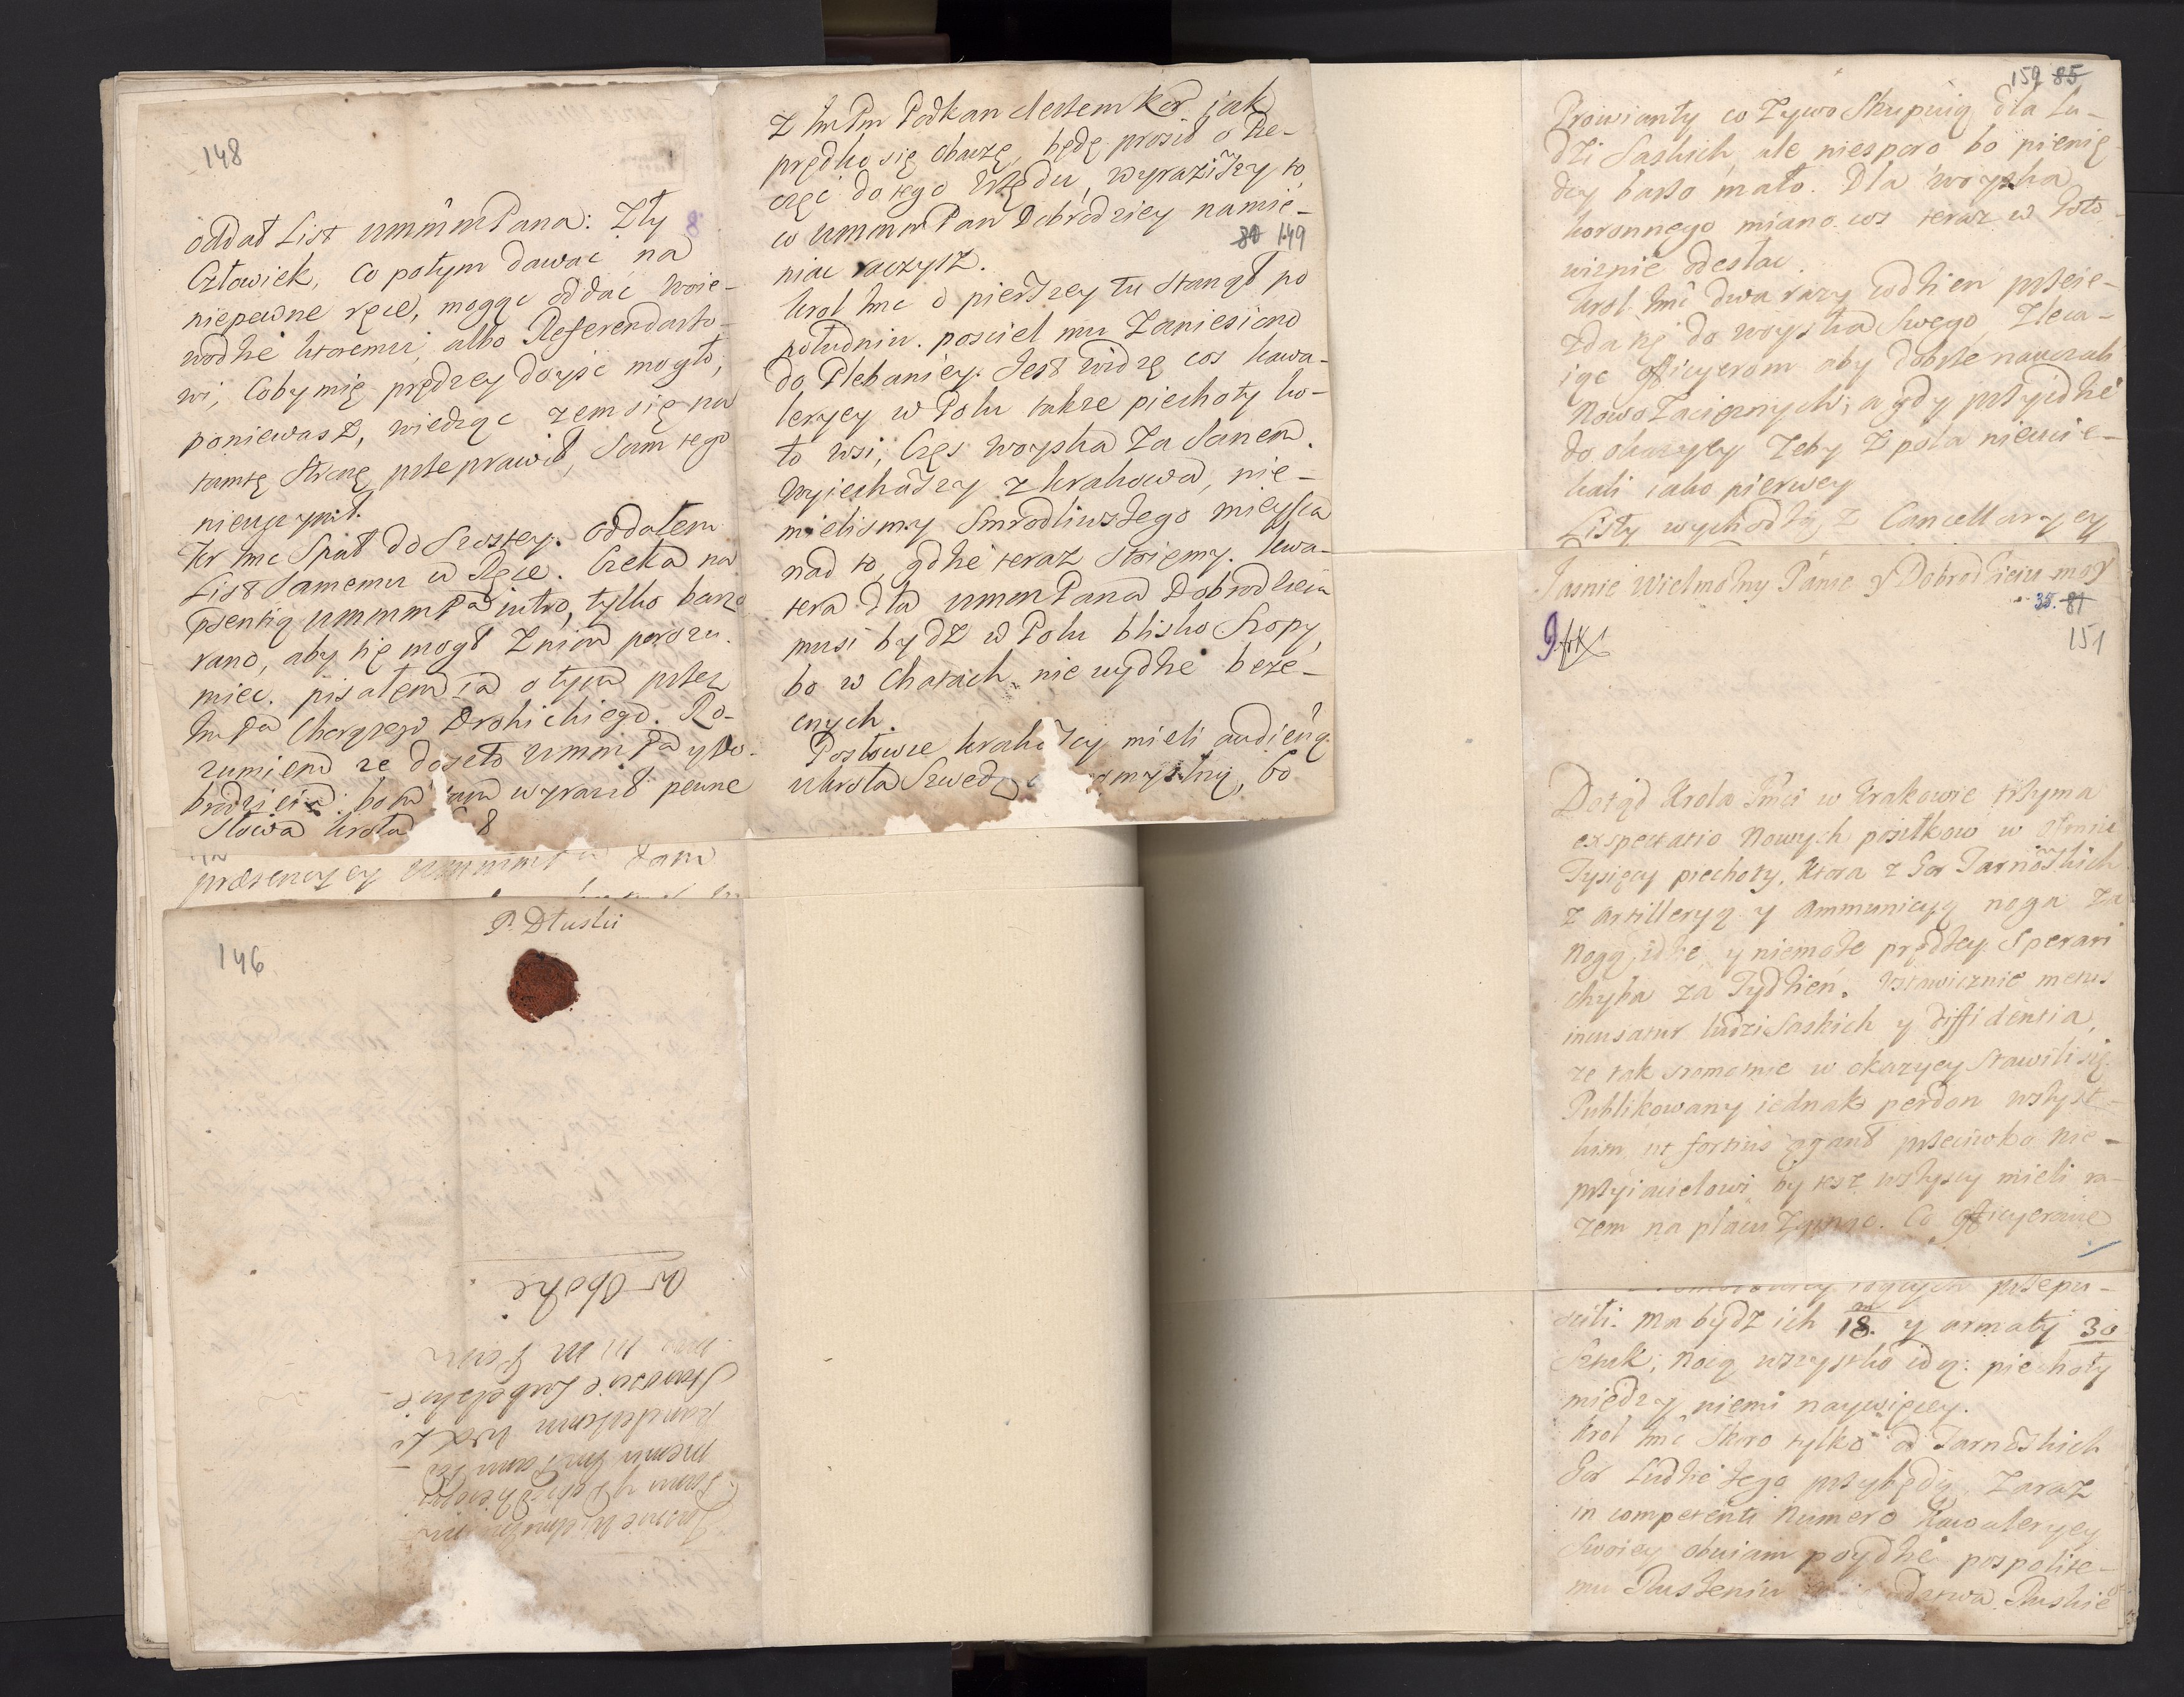 148
8
oddał List UMMMPana: Zły
Człowiek, co potym dawać na
niepewne ręce, mogąc oddać woie-
wodzie ktoremu, albo Referendarzo-
wi, coby mię prędzey doyść mogło,
poniewasz, wiedząc zem się na
tamtę Stronę przeprawił, sam tego
nieuczynił.
Kr Jmc Spał do Szostey. oddałem
List Samemu w Ręce. Czeka na
UMMMPa iutro, tylko barzo
rano, aby się mogł z nim porozu-
miec. pisałem ia o tym przez
JmPa Chorązego Drohickiego. Ro-
zumiem ze doszeło UMMPa y Do-
brodzieia: bom tam wyraził pewne
Słowa krola
z JmPm Podkanclerzem Kor jak
prędko się obaczę, będę prosił o Pie-
częć do tego Urzędu, wyraziwszy to
co UMMMPan Dobrodziey namie-
80 149
niac raczysz.
Krol Jmc o pierszey tu stanął po
południu. posciel mu zaniesiono
do Plebaniey. Jest widzę cos kawa-
leryey w Polu takze piechoty ko-
ło wsi, Częs woyska za Sanem.
Wyiechawszy z krakowa, nie-
mielismy Smrodliwszego mieysca
nad to, gdzie teraz stoiemy. kwa-
tera dla UMMPana Dobrodzieia
musi bydz w Polu blisko Szopy,
bo w Chatach nie uydzie beze-
cnych.
Posłowie krakoscy mieli audiencyą
u krola Szwedz
prezencyey UMMMPa tam
146
P. Dłuski
w Obozie
mu M M Panu
Staroscie Lubelskie-
Kanclerzemu
memu JmPanu Pod
Panu y Dobrodzieiowi
Jasnie Wielmoznemu
159 85
Prowianty co zywo Skupuią dla Lu-
dzi Saskich ale niesporo bo pienię-
dzy barzo mało. Dla woyska
koronnego miano cos teraz w Goto-
wiznie odesłac.
Krol Jmc dwa razy co dzien przeie-
zdza się do woyska Swego Zleca-
iąc officyerom aby dobrze nauczali
Nowo Zacięznych, a gdy przyidzie
do okazyey zeby z pola nieucie-
kali iako pierwey
Listy wychodzą z Cancellaryey
Jasnie Wielmozny Panie y Dobrodzieiu moy
35. 81
151
9
Dotąd Krola Jmci w Krakowie trzyma
expectatio Nowych posiłkow w osmiu
Tysięcy piechoty, ktora z Gor Tarnoskich
z Artilleryą y Ammunicyą noga za
nogą idzie y niemoze prędzey Sperari
chyba za Tydzień. Ustawicznie metus
incusatur ludzi Saskich y diffidentia,
ze tak sromotnie w okazyey Stawili się.
Publikowany iednak perdon wszyst-
kim ut fortius agant przeciwko Nie-
przyiacielowi by tesz wszyscy mieli ra-
zem na placu zginąc. Co officyerowie
przepu-
scili. Ma bydz ich 18. y armaty 30
Sztuk, nocą wszystko idą: piechoty
między niemi naywięcey.
Krol Jmc skoro tylko od Tarnoskich
Gor Ludzie tego przybędą, zaraz
in competenti Numero Kawaleryey
Swoiey obuiam poydzie pospolite-
mu Ruszeniu Ruskie